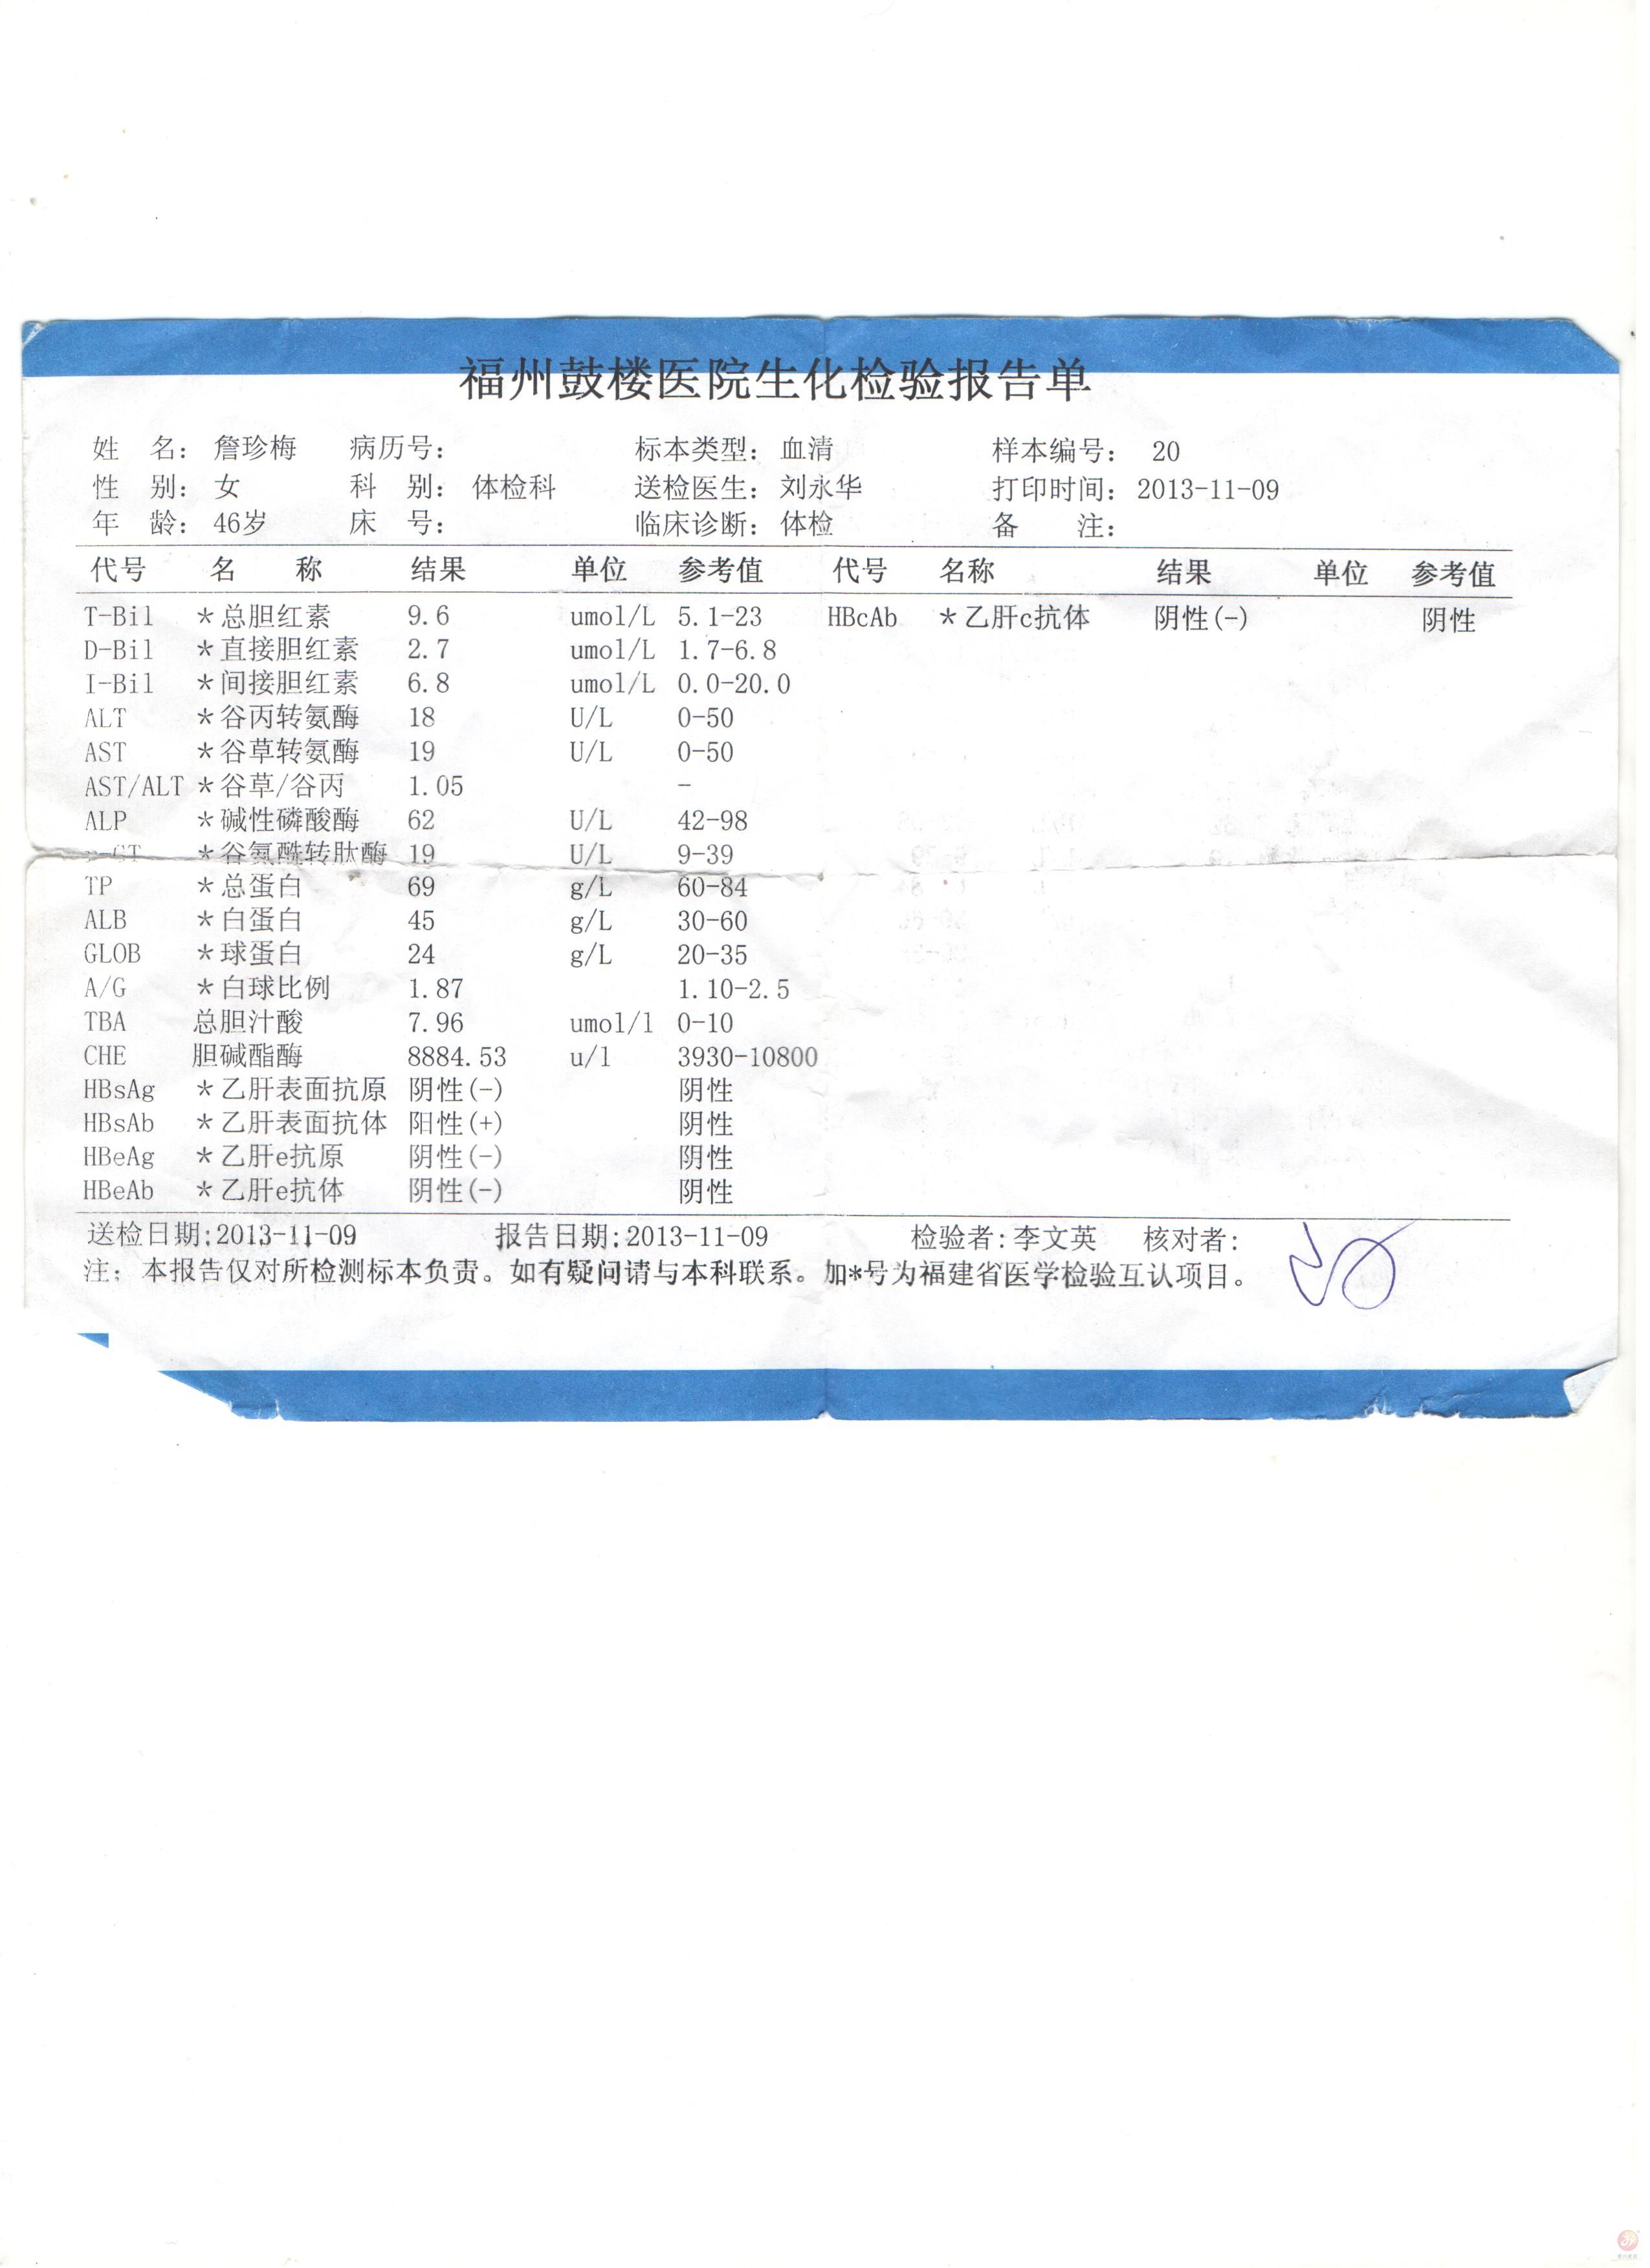 福州鼓楼医院生化检验报告单
姓 名： 詹珍梅 病历号： 标本类型： 血清 样本编号： 20
性 别： 女 科 别： 体检科 送检医生： 刘永华 打印时间： 2013-11-09
年 龄： 46岁 床 号： 临床诊断： 体检 备 注：
代号 名 称 结果 单位 参考值 代号 名称 结果 单位 参考值
T-Bil *总胆红素 9.6 umol/L 5.1-23 HBcAb *乙肝c抗体 阴性(-) 阴性
D-Bil *直接胆红素 2.7 umol/L 1.7-6.8
I-Bil *间接胆红素 6.8 umol/L 0.0-20.0
ALT *谷丙转氨酶 18 U/L 0-50
AST *谷草转氨酶 19 U/L 0-50
AST/ALT *谷草/谷丙 1.05 -
ALP *碱性磷酸酶 62 U/L 42-98
*谷氨酰转肽酶 19 U/L 9-39
TP *总蛋白 69 g/L 60-84
ALB *白蛋白 45 g/L 30-60
GLOB *球蛋白 24 g/L 20-35
A/G *白球比例 1.87 1.10-2.5
TBA 总胆汁酸 7.96 umol/l 0-10
CHE 胆碱酯酶 8884.53 u/l 3930-10800
HBsAg *乙肝表面抗原 阴性(-) 阴性
HBsAb *乙肝表面抗体 阳性(+) 阴性
HBeAg *乙肝e抗原 阴性(-) 阴性
HBeAb *乙肝e抗体 阴性(-) 阴性
送检日期:2013-11-09 报告日期:2013-11-09 检验者:李文英 核对者:
注：本报告仅对所检测标本负责。如有疑问请与本科联系。加*号为福建省医学检验互认项目。